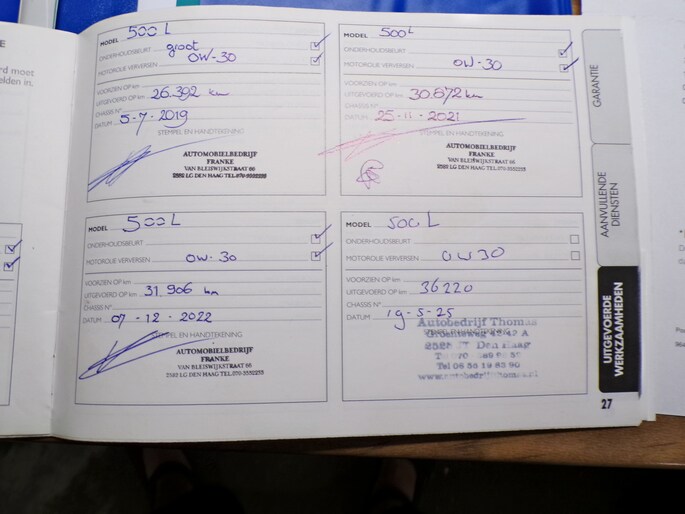 MODEL 500 L
ONDERHOUDSBEURT groot
MOTOROLIE VERVERSEN 0W-30
VOORZIEN OP km
UITGEVOERD OP km 26.392 km
CHASSIS N°
DATUM 5-7-2019
STEMPEL EN HANDTEKENING
AUTOMOBIELBEDRIJF
FRANKE
VAN BLEISWIJKSTRAAT 66
2582 LG DEN HAAG TEL.070-3552233
MODEL 500L
ONDERHOUDSBEURT
MOTOROLIE VERVERSEN 0W-30
VOORZIEN OP km
UITGEVOERD OP km 30.672 km
CHASSIS N°
DATUM 25-11-2021
STEMPEL EN HANDTEKENING
AUTOMOBIELBEDRIJF
FRANKE
VAN BLEISWIJKSTRAAT 66
2582 LG DEN HAAG TEL.070-3552233
MODEL 500 L
ONDERHOUDSBEURT
MOTOROLIE VERVERSEN 0W-30
VOORZIEN OP km
UITGEVOERD OP km 31.906 km
CHASSIS N°
DATUM 07-12-2022
STEMPEL EN HANDTEKENING
AUTOMOBIELBEDRIJF
FRANKE
VAN BLEISWIJKSTRAAT 66
2582 LG DEN HAAG TEL.070-3552233
MODEL 500 L
ONDERHOUDSBEURT
MOTOROLIE VERVERSEN 0W30
VOORZIEN OP km
UITGEVOERD OP km 36220
CHASSIS N°
DATUM 19-5-25
Autobedrijf Thomas
Den Haag
GARANTIE
AANVULLENDE
DIENSTEN
UITGEVOERDE
WERKZAAMHEDEN
27
rd moet
elden in.